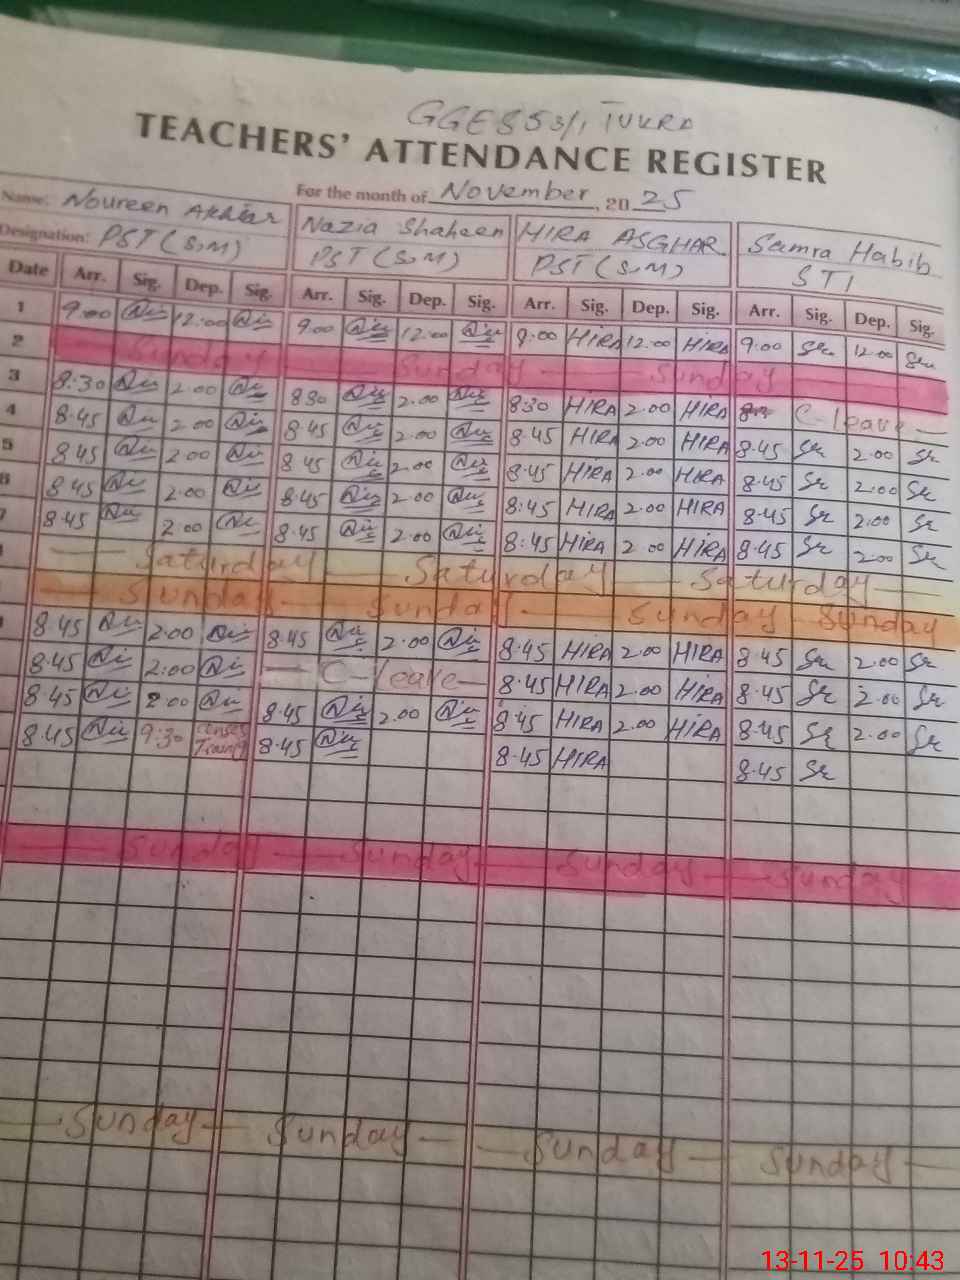 GGES 53/1 TUKRA
TEACHERS' ATTENDANCE REGISTER
For the month of November, 2025
Name: Noureen Akhtar Nazia Shaheen HIRA ASGHAR Samra Habib
Designation: PST (S.M) PST (S.M) PST (S.M) STI
Date Arr. Sig. Dep. Sig. Arr. Sig. Dep. Sig. Arr. Sig. Dep. Sig. Arr. Sig. Dep. Sig.
1 9:00 12:00 9:00 12:00 9:00 HIRA 12:00 HIRA 9:00 12:00
2 Sunday Sunday Sunday
3 8:30 2.00 8:30 2.00 8:30 HIRA 2.00 HIRA C-leave
4 8:45 2.00 8:45 2.00 8:45 HIRA 2.00 HIRA 8:45 2.00
5 8:45 2.00 8:45 2.00 8:45 HIRA 2.00 HIRA 8:45 2.00
6 8:45 2.00 8:45 2.00 8:45 HIRA 2.00 HIRA 8:45 2.00
7 8:45 2.00 8:45 2.00 8:45 HIRA 2.00 HIRA 8:45 2.00
Saturday Saturday Saturday
Sunday Sunday Sunday Sunday
8:45 2.00 8:45 2.00 8:45 HIRA 2.00 HIRA 8:45 2.00
8:45 2:00 C-leave 8:45 HIRA 2.00 HIRA 8:45 2.00
8:45 2:00 8:45 2.00 8:45 HIRA 2.00 HIRA 8:45 2.00
8:45 9:30 8:45 8:45 HIRA 8:45
Sunday Sunday Sunday Sunday
Sunday Sunday Sunday Sunday
13-11-25 10:43